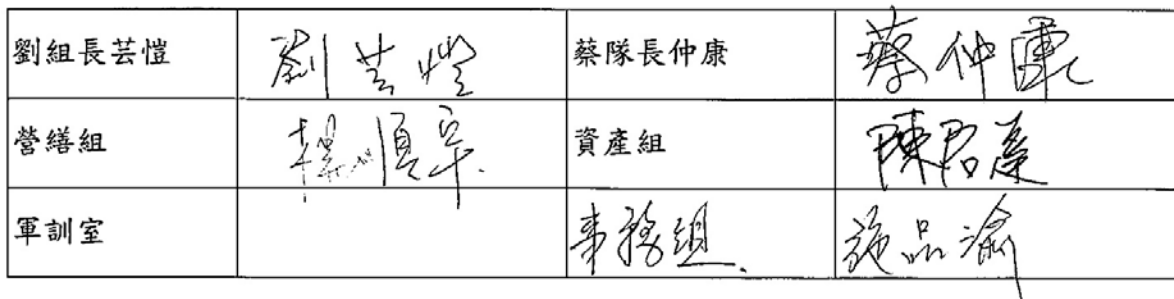 劉組長芸愷 劉芸愷 蔡隊長仲康 蔡仲康
營繕組 資產組 陳君蓬
軍訓室 事務組 施品渝